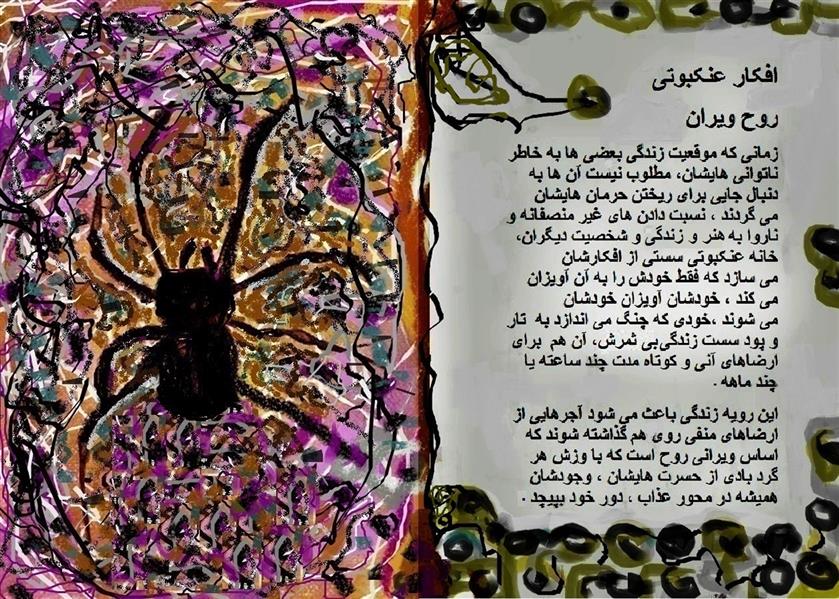 افکار عنکبوتی
روح ویران
زمانی که موقعیت زندگی بعضی ها به خاطر
ناتوانی هایشان، مطلوب نیست آن ها به
دنبال جایی برای ریختن حرمان هایشان
می گردند ، نسبت دادن های غیر منصفانه و
ناروا به هنر و زندگی و شخصیت دیگران،
خانه عنکبوتی سستی از افکارشان
می سازد که فقط خودش را به آن آویزان
می کند ، خودشان آویزان خودشان
می شوند ،خودی که چنگ می اندازد به تار
و پود سست زندگی‌بی ثمرش، آن هم برای
ارضاهای آنی و کوتاه مدت چند ساعته یا
چند ماهه .
این رویه زندگی باعث می شود آجرهایی از
ارضاهای منفی روی هم گذاشته شوند که
اساس ویرانی روح است که با وزش هر
گرد بادی از حسرت هایشان ، وجودشان
همیشه در محور عذاب ، دور خود بپیچد .